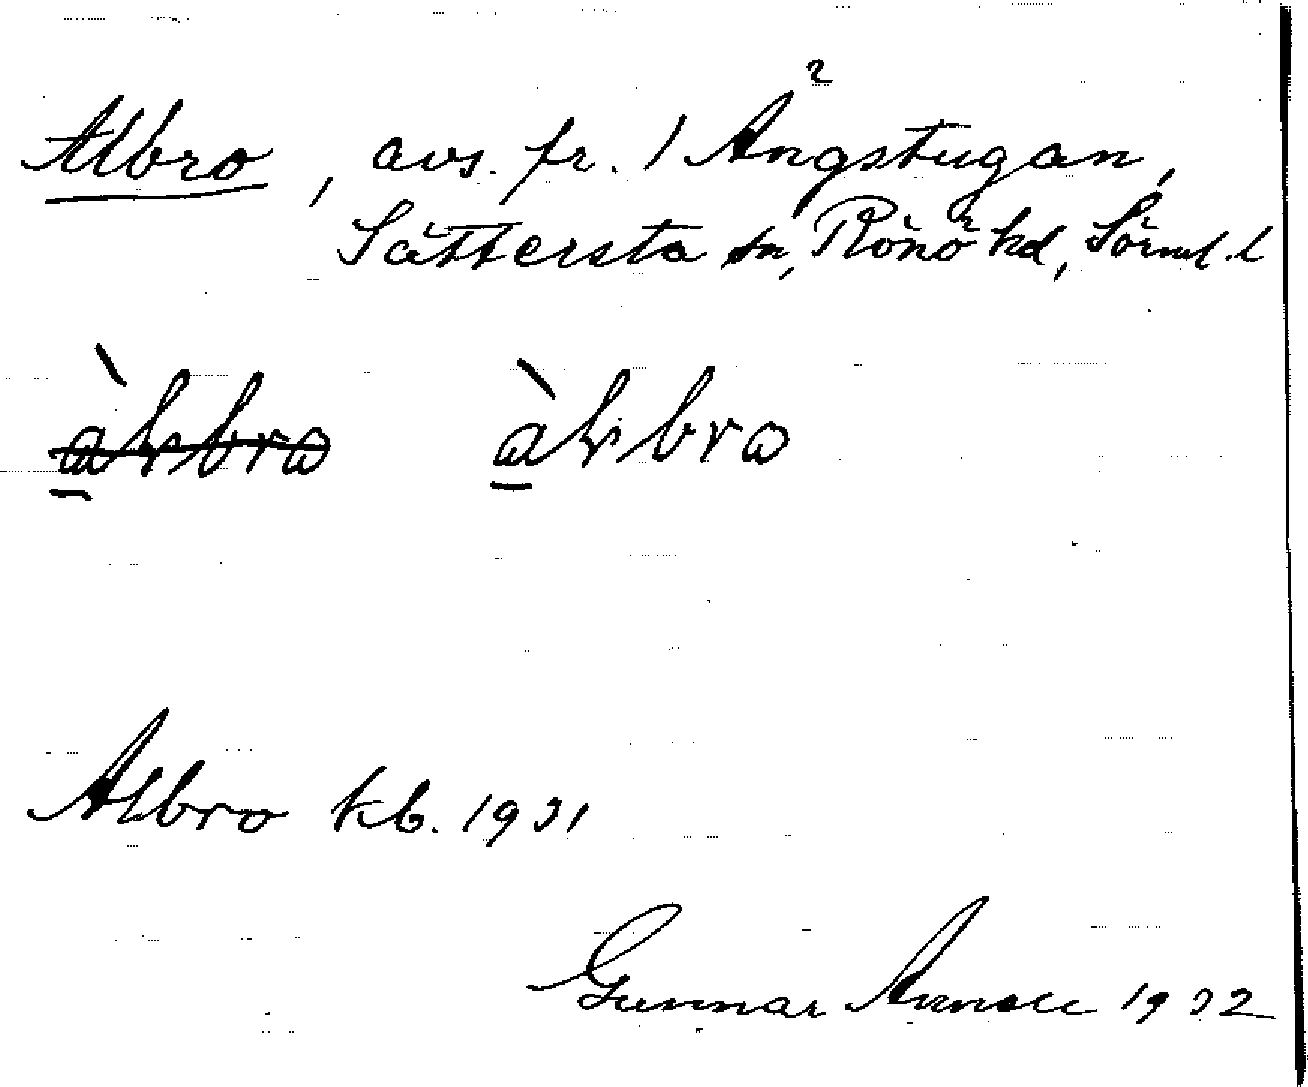 Albro, avs. fr. 1 Ängstugan,
Sättersta sn, Rönö hd, Sörml. l
àlvbro àlvbro
Albro kb. 1931
Gunnar Arnell 1932